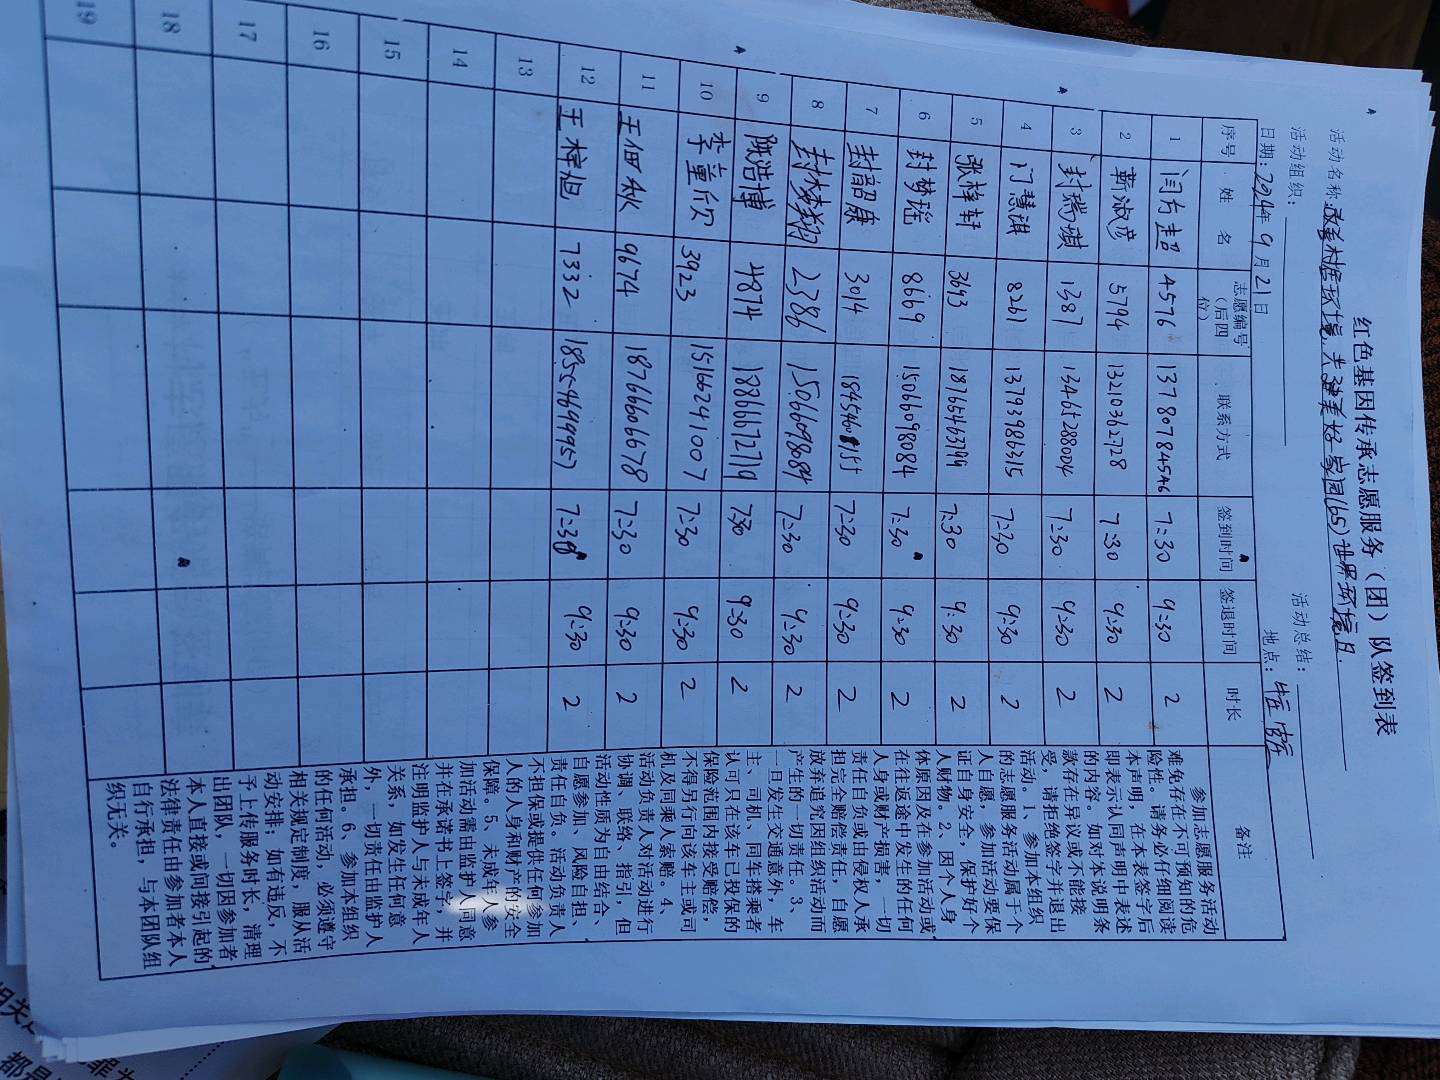 红色基因传承志愿服务（团）队签到表
活动名称:改善村居环境,共建美好家园(65)世界环境日.
活动组织: 活动总结:
日期:2024年9月21日 地点:
序号 姓名 志愿编号（后四位） 联系方式 签到时间 签退时间 时长 备注
1 闫方超 4576 7:30 9:30 2
2 靳淑彦 5794 13210362728 7:30 9:30 2
3 封瑞琪 1387 13465288004 7:30 9:30 2
4 门慧淇 8261 13793986315 7:30 9:30 2
5 张梓轩 3693 18765463199 7:30 9:30 2
6 封梦瑶 8669 15066098084 7:30 9:30 2
7 封韶康 3014 7:30 9:30 2
8 封梦翔 2386 15066098084 7:30 9:30 2
9 陈浩博 4874 18866672719 7:30 9:30 2
10 李童欣 3923 15166241007 7:30 9:30 2
11 王佃秋 9674 18766606678 7:30 9:30 2
12 王梓旭 7332 18554699957 7:30 9:30 2
13
14
15
16
17
18
19
参加志愿服务活动
难免存在不可预知的危
险性。请务必仔细阅读
本声明，在本表签字后
即表示认同声明中表述
的内容。如对本说明条
款存在异议或不能接
受，请拒绝签字并退出
活动。1、参加本组织
的志愿服务活动属于个
人自愿，参加活动要保
证自身安全，保护好个
人财物。2、因个人身
体原因及在参加活动或
在往返途中发生的任何
人身或财产损害，一切
责任自负或由侵权人承
担完全赔偿责任，自愿
放弃追究因组织活动而
产生的一切责任。3、
一旦发生交通意外，车
主、司机、同车搭乘者
认可只在该车已投保的
保险范围内接受赔偿，
不得另行向该车主或司
机及同乘人索赔。4、
活动负责人对活动进行
协调、联络、指引，但
活动性质为自由结合、
自愿参加、风险自担、
责任自负。活动负责人
不担保或提供任何参加
人的人身和财产的安全
保障。5、未成年人参
加活动需由监护人同意
并在承诺书上签字，并
注明监护人与未成年人
关系，如发生任何意
外，一切责任由监护人
承担。6、参加本组织
的任何活动，必须遵守
相关规定制度，服从活
动安排；如有违反，不
予上传服务时长，清理
出团队，一切因参加者
本人直接或间接引起的
法律责任由参加者本人
自行承担，与本团队组
织无关。